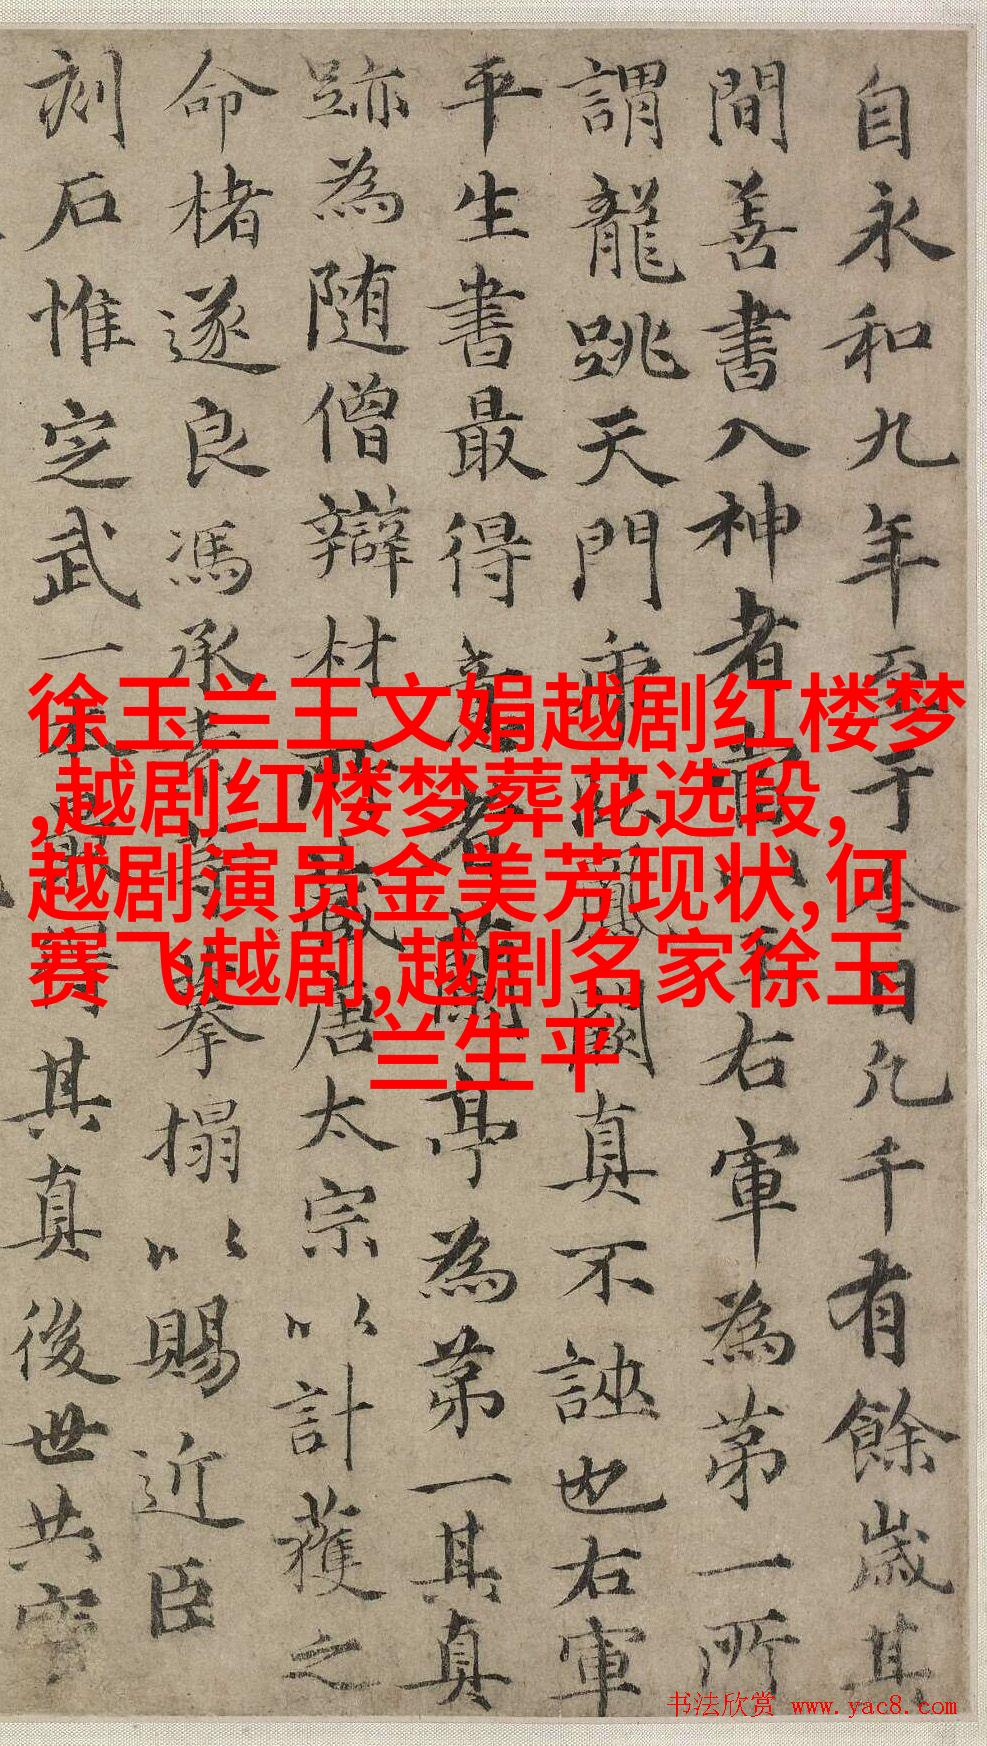 自永和九年至于今日凢千有餘歲其
間善書入神者當以王右軍為苐一所
謂龍跳天門虎卧鳳闕真不誣也右軍
平生書最得意者蘭亭為苐一其真
跡為随僧辯材所藏唐太宗以計獲之
命楮遂良馮承素拳搨以賜近臣
刻石惟定武一本最得其真後世共寳
徐玉兰王文娟越剧红楼梦
,越剧红楼梦葬花选段,
越剧演员金美芳现状,何
赛飞越剧,越剧名家徐玉
兰生平
书法欣赏 www.yac8.com